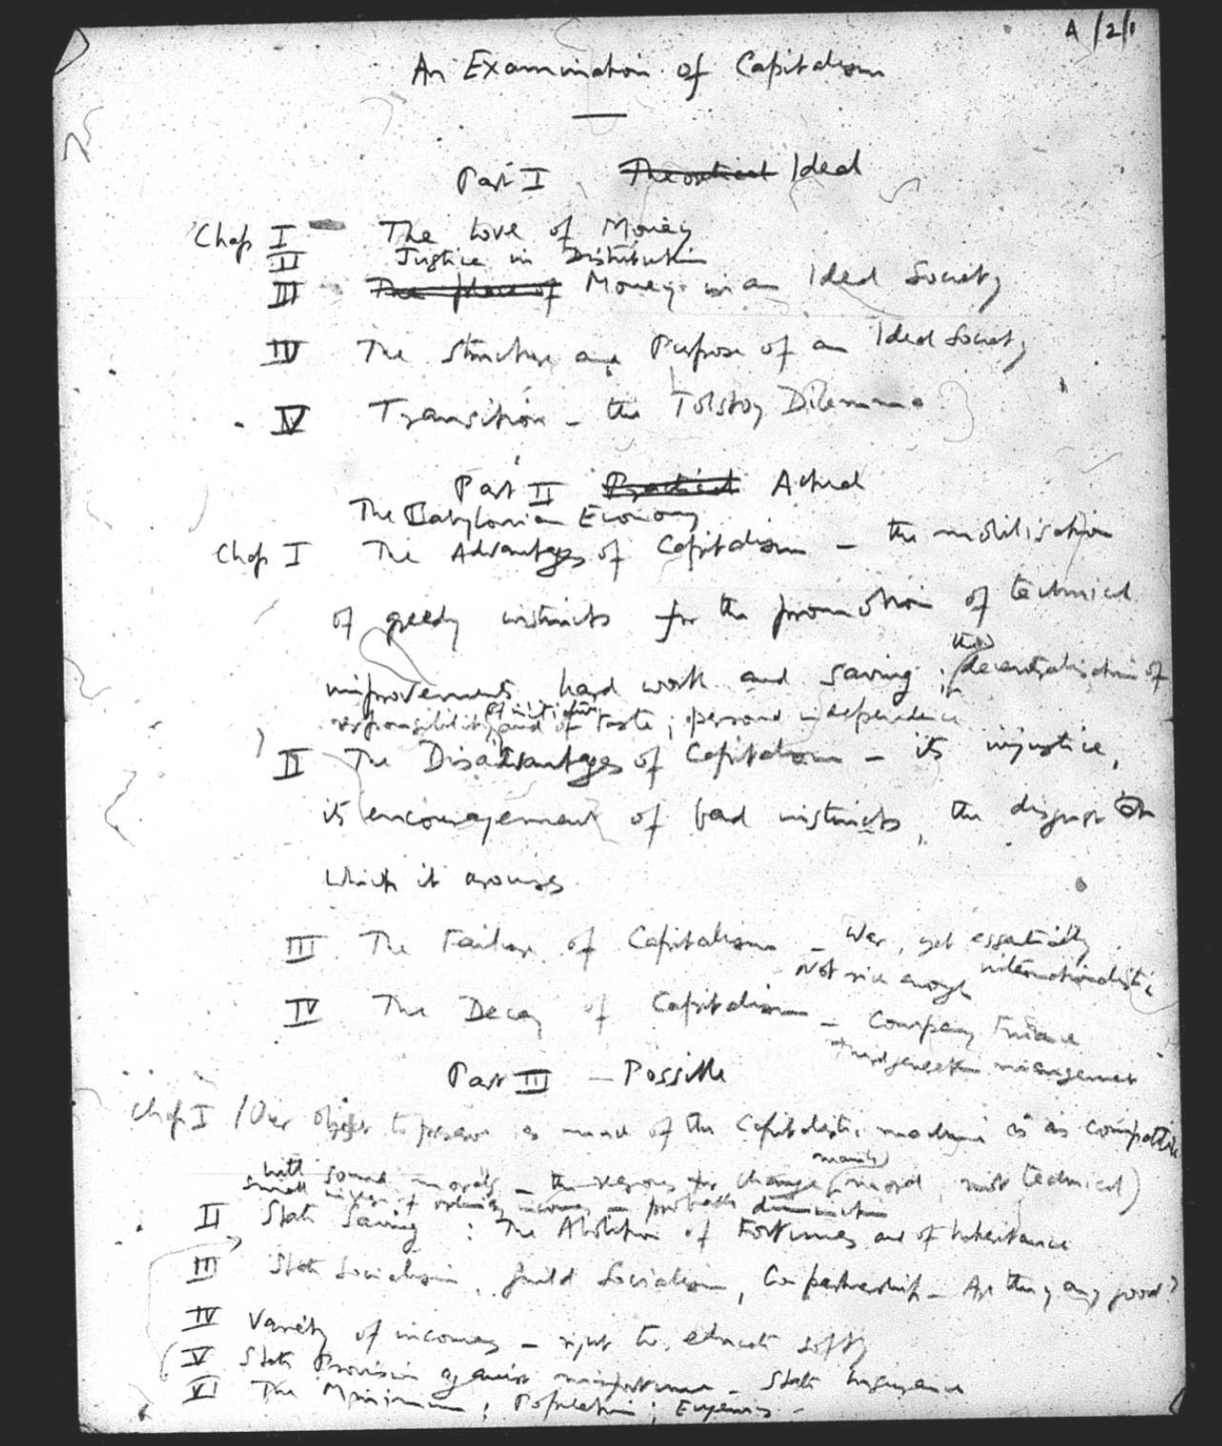 A/2/1
An Examination of Capitalism
Part I Theoretical Ideal
Chap I The Love of Money
II Justice in Distribution
III The place of Money in an Ideal Society
IV The Structure and Purpose of an Ideal Society
IV Transition – the Tolstoy Dilemma
Part II Practical Actual
The Babylonian Economy
Chap I The Advantages of Capitalism – the mobilisation
of greedy instincts for the promotion of technical
improvements, hard work and saving; the decentralisation of
responsibility and of initiative of taste; personal independence
II The Disadvantages of Capitalism – its injustice,
its encouragement of bad instincts, the disgust
which it arouses
III The Failure of Capitalism – War, yet essentially
internationalistic
Not rich enough
IV The Decay of Capitalism – Company Finance
Third generation management
Part III – Possible
Chap I (Our object to preserve as much of the Capitalistic machine as is compatible
with sound morals – the reasons for change (mainly moral, not technical)
small of ordinary incomes – probable diminution
II State Saving : The Abolition of Fortunes and of Inheritance
III State Socialism, Guild Socialism, Co-partnership – Are they any good?
IV Variety of incomes – right to educate
V State Provision against misfortune – State Insurance
VI The Minimum; Population; Eugenics –